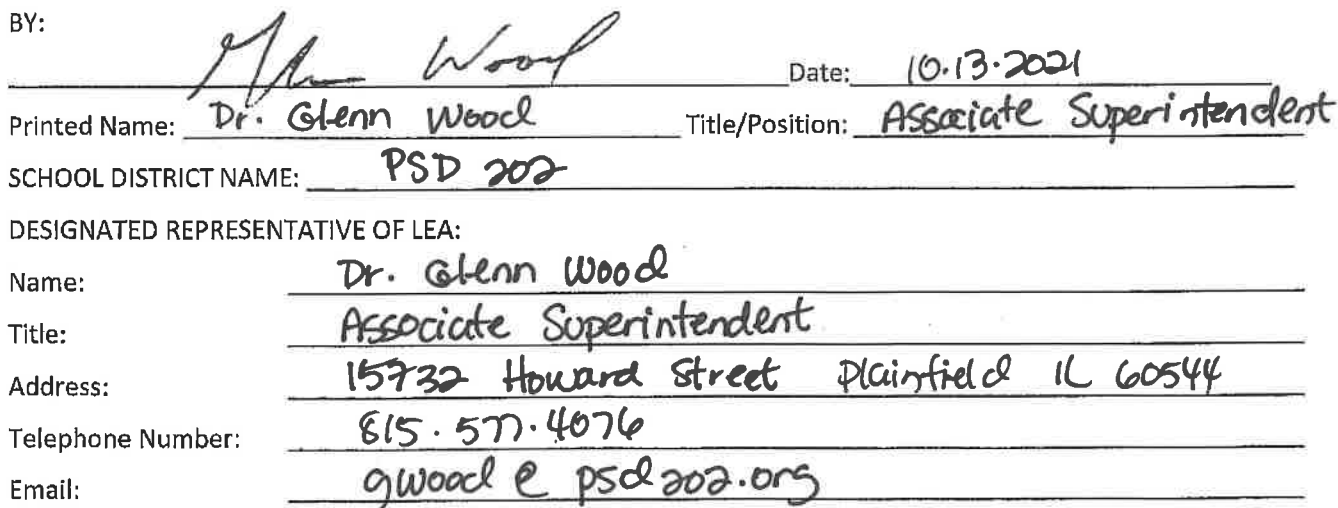 BY:
Glenn Wood Date: 10.13.2021
Printed Name: Dr. Glenn Wood Title/Position: Associate Superintendent
SCHOOL DISTRICT NAME: PSD 202
DESIGNATED REPRESENTATIVE OF LEA:
Name: Dr. Glenn Wood
Title: Associate Superintendent
Address: 15732 Howard Street Plainfield IL 60544
Telephone Number: 815.577.4076
Email: gwood@psd202.org